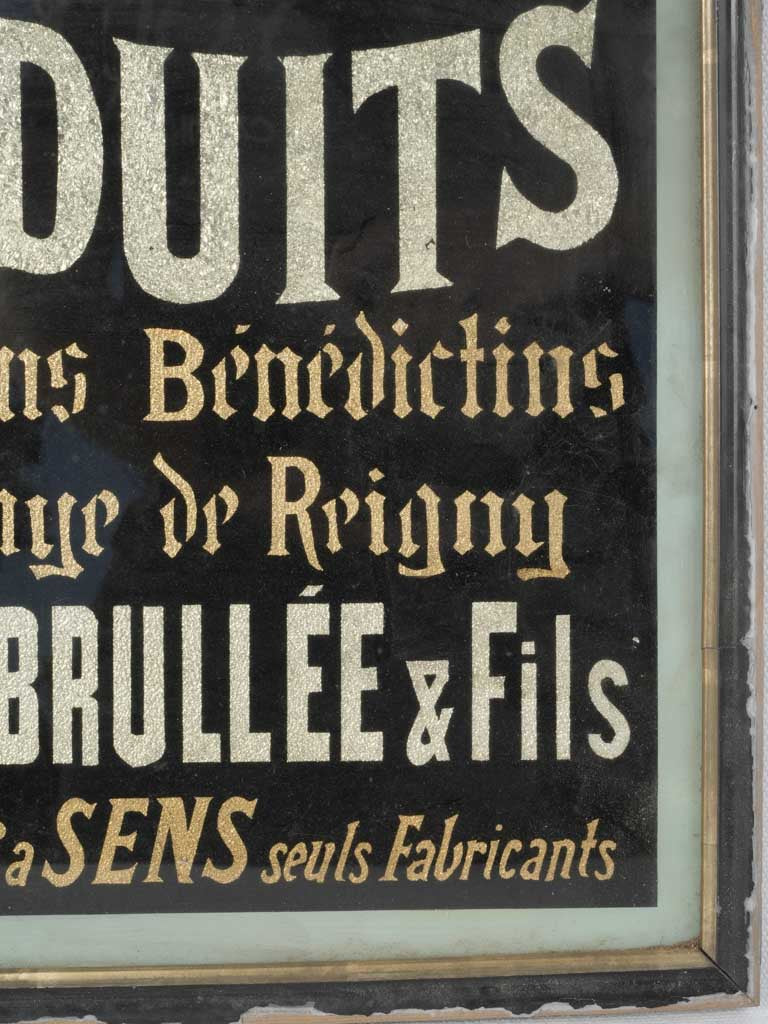 DUITS
ns Bénédictins
aye de Reigny
BRULLÉE & Fils
a SENS seuls Fabricants